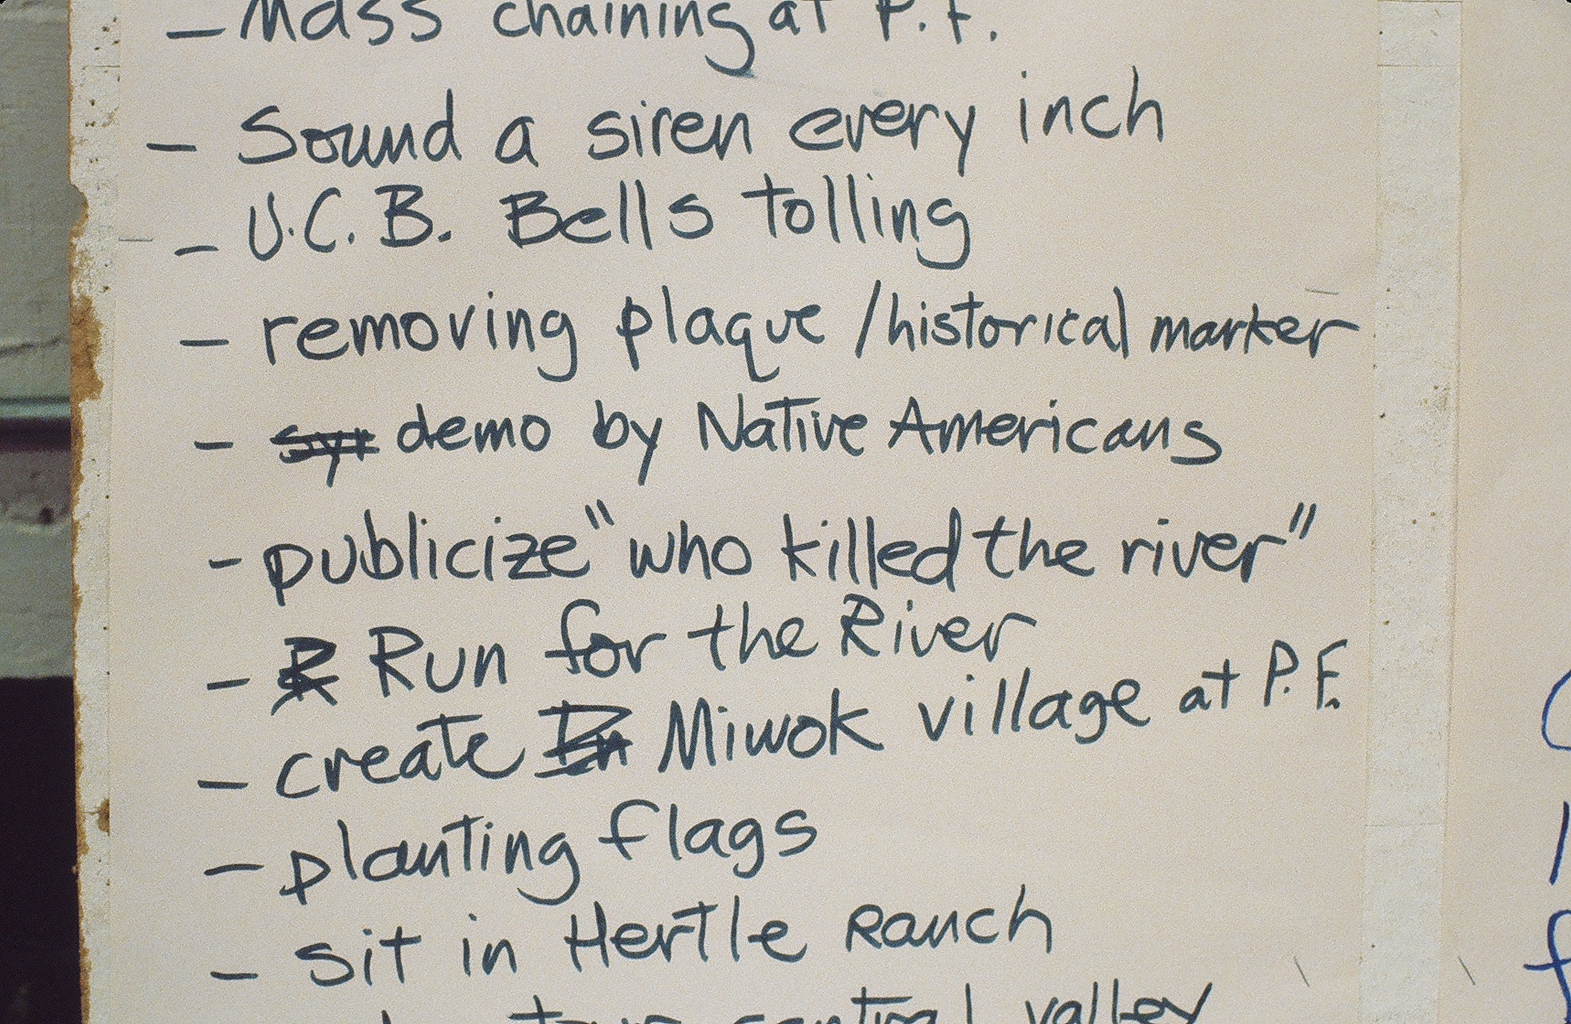 - Mass chaining at P.F.
- Sound a siren every inch
- U.C.B. Bells tolling
- removing plaque / historical marker
- demo by Native Americans
- publicize "who killed the river"
- Run for the River
- create Miwok village at P.F.
- planting flags
- sit in Hertle Ranch
tour central valley